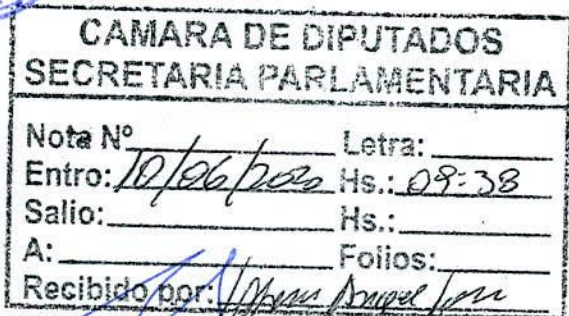 CAMARA DE DIPUTADOS
SECRETARIA PARLAMENTARIA
Nota Nº Letra:
Entro: 10/06/2020 Hs.: 09:38
Salio: Hs.:
A: Folios:
Recibido por: